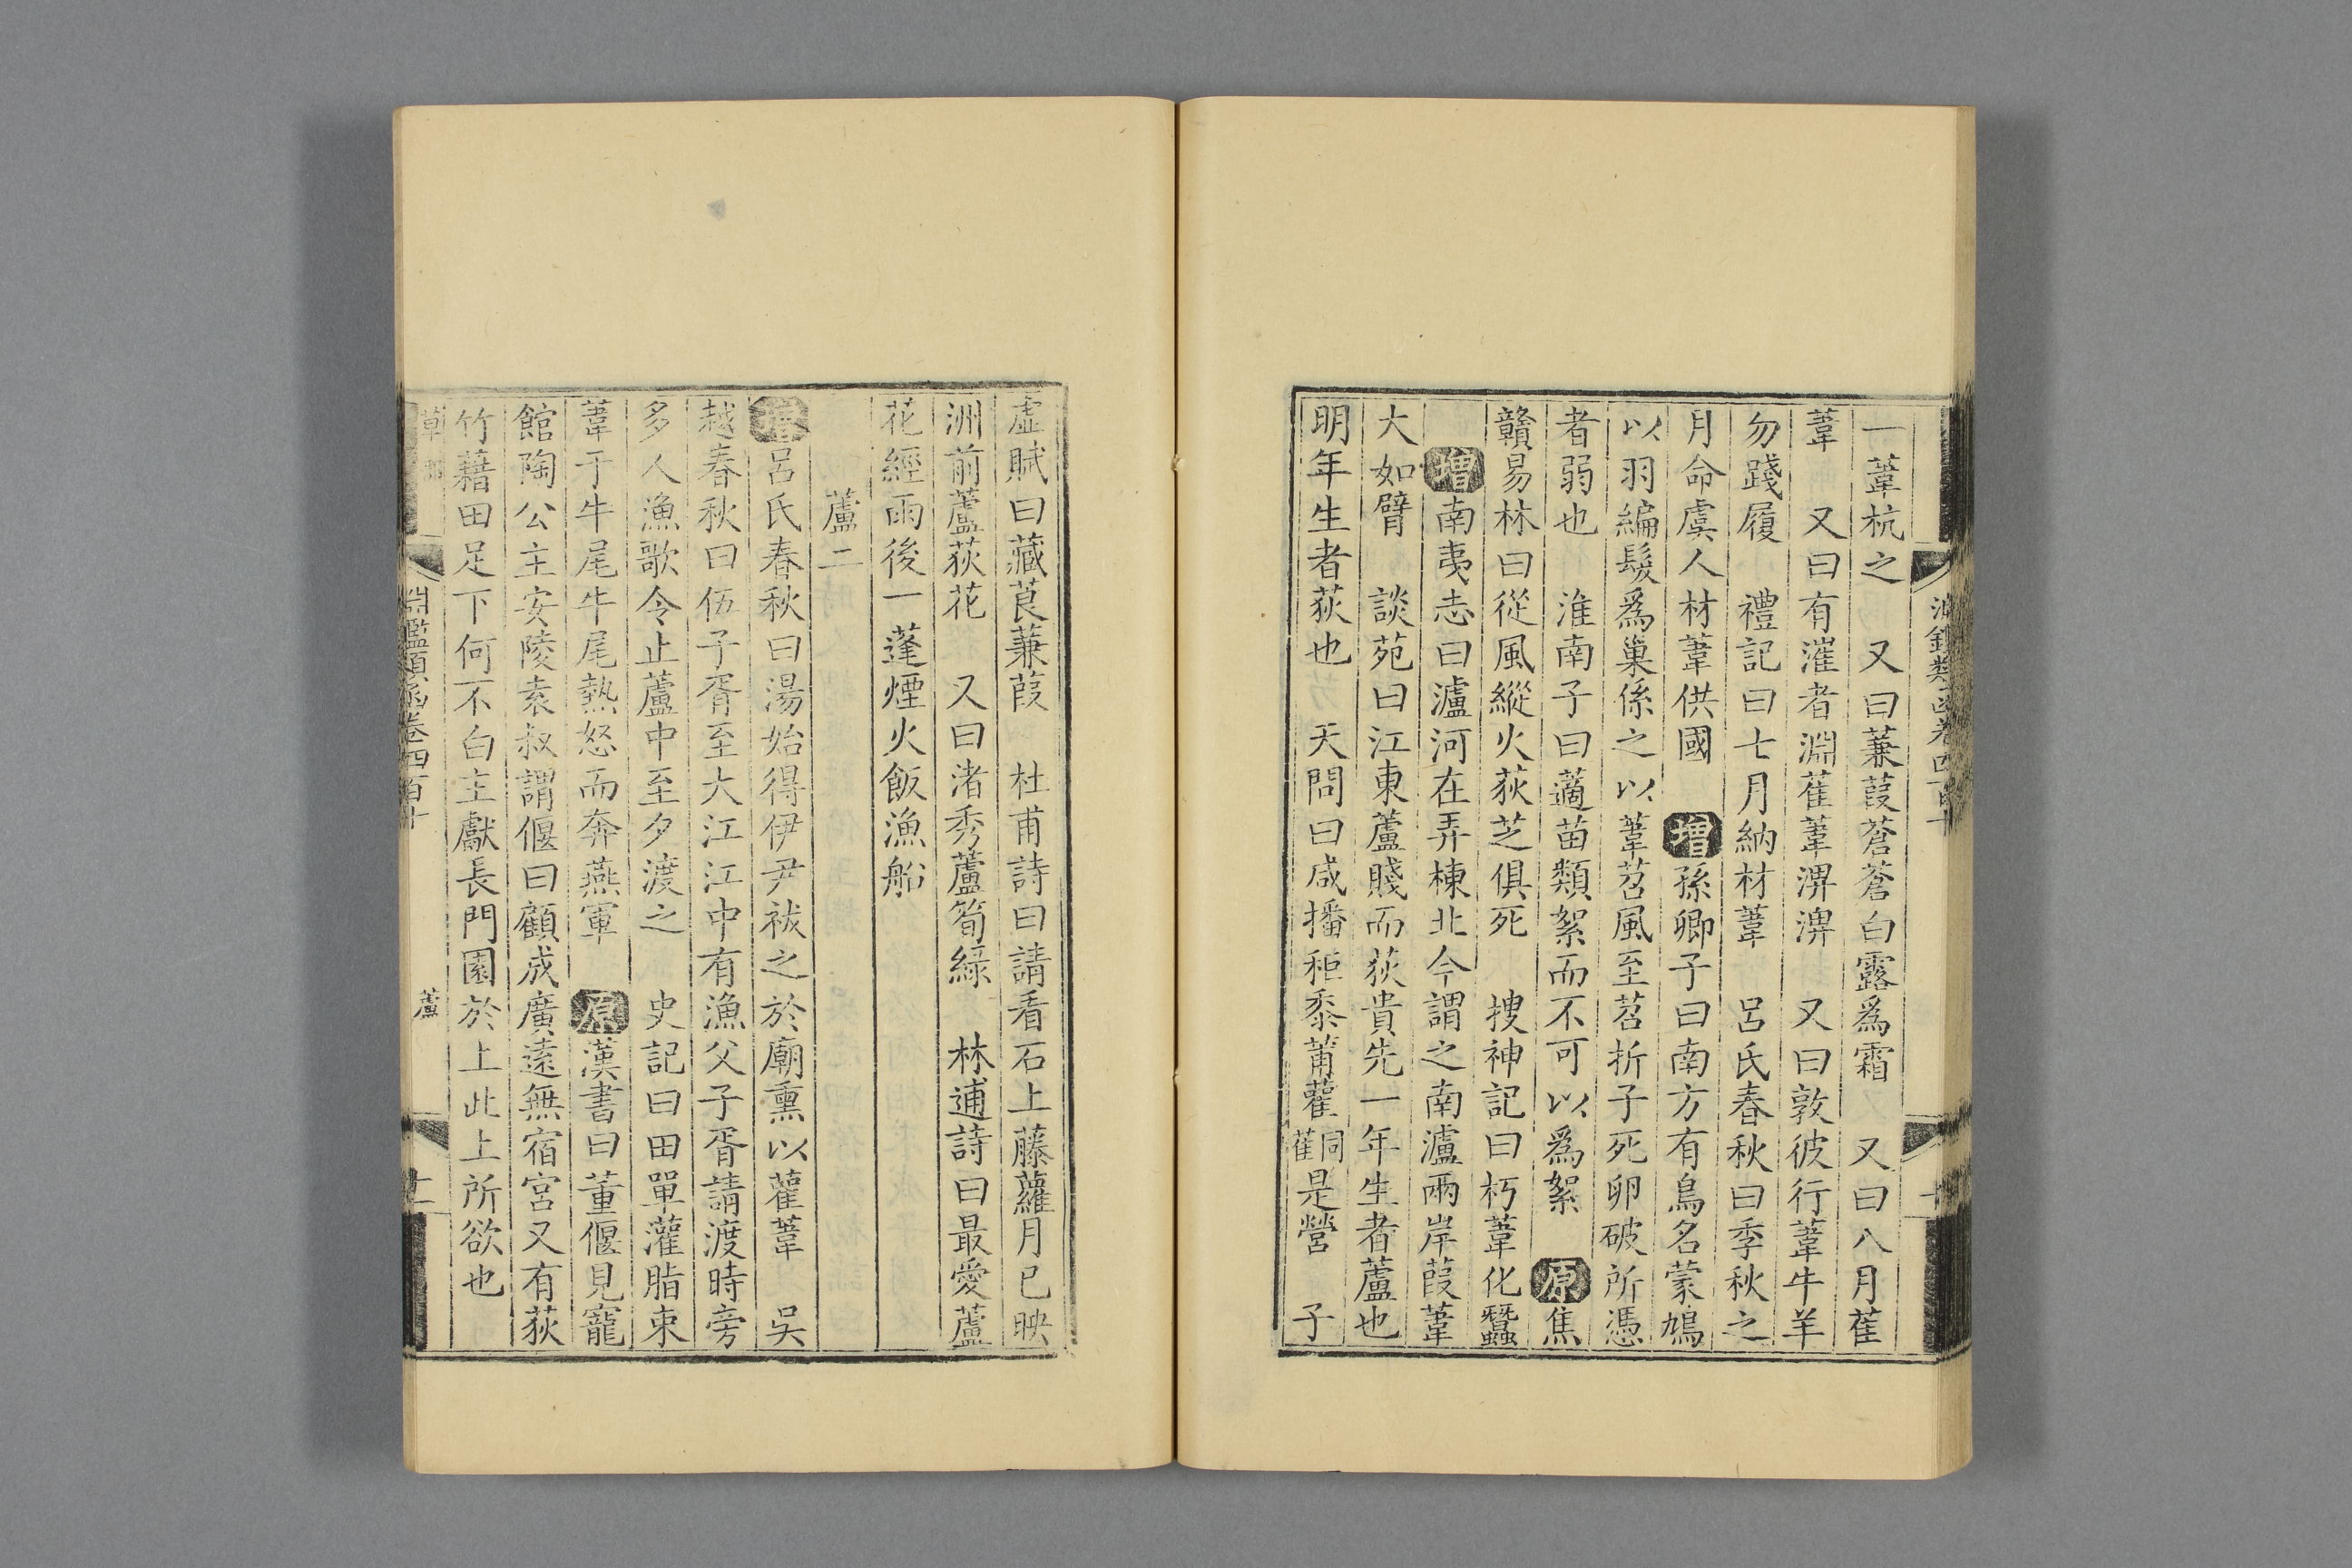 一葦杭之　又曰蒹葭蒼蒼白露爲霜　又曰八月萑
葦　又曰有漼者淵萑葦淠淠　又曰敦彼行葦牛羊
勿踐履　禮記曰七月納材葦　呂氏春秋曰季秋之
月命虞人材葦供國　增孫卿子曰南方有鳥名蒙鳩
以羽編髮爲巢係之以葦苕風至苕折子死卵破所憑
者弱也　淮南子曰藡苗類絮而不可以爲絮　原焦
贛易林曰從風縱火荻芝俱死　搜神記曰朽葦化蠶
增南夷志曰瀘河在弄棟北今謂之南瀘兩岸葭葦
大如臂　談苑曰江東蘆賤而荻貴先一年生者蘆也
明年生者荻也　天問曰咸播秬黍莆雚同萑是營　子
虛賦曰藏莨蒹葭　杜甫詩曰請看石上藤蘿月已映
洲前蘆荻花　又曰渚秀蘆筍綠　林逋詩曰最愛蘆
花經雨後一蓬煙火飯漁船
蘆二
增呂氏春秋曰湯始得伊尹祓之於廟熏以雚葦　吳
越春秋曰伍子胥至大江江中有漁父子胥請渡時旁
多人漁歌令止蘆中至夕渡之　史記曰田單灌脂束
葦于牛尾牛尾熱怒而奔燕軍　原漢書曰董偃見寵
館陶公主安陵袁叔謂偃曰顧成廣遠無宿宮又有荻
竹藉田足下何不白主獻長門園於上此上所欲也
淵鑑類函卷四百十
蘆
十一